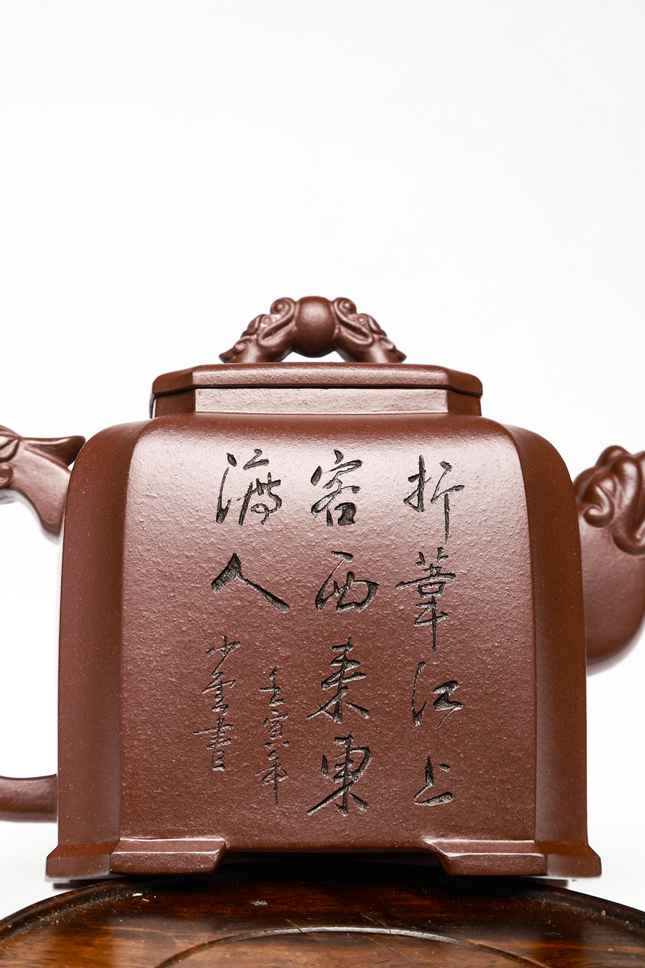 折葦江上
客西来東
渡人
壬寅年
少雲書